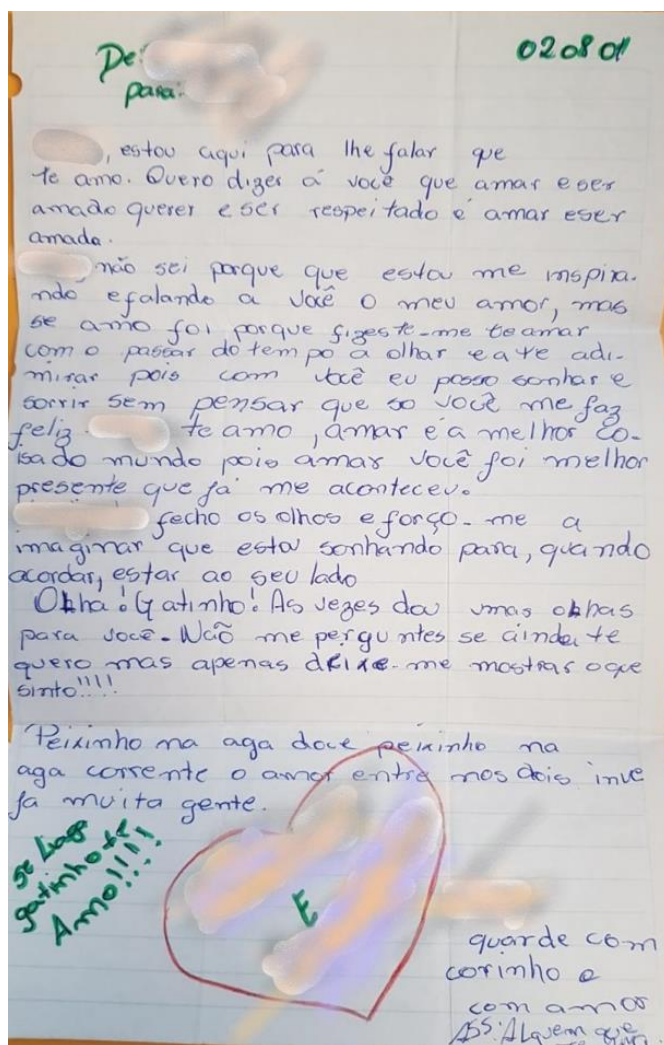 De:
020801
para:
, estou aqui para lhe falar que
te amo. Quero dizer á você que amar e ser
amado querer e ser respeitado é amar e ser
amada.
não sei porque que estou me inspira-
ndo e falando a você o meu amor, mas
se amo foi porque fizeste-me te amar
com o passar do tempo a olhar e a te adi-
mirar pois com você eu posso sonhar e
sorrir sem pensar que so você me faz
feliz te amo, amar é a melhor co-
isa do mundo pois amar você foi melhor
presente que já me aconteceu.
fecho os olhos e forço-me a
imaginar que estou sonhando para, quando
acordar, estar ao seu lado
Olha! Gatinho! As vezes dou umas olhas
para você. Não me perguntes se ainda te
quero mas apenas deixe-me mostrar o que
sinto!!!!
Peixinho na aga doce peixinho na
aga corrente o amor entre nos dois inve
ja muita gente.
se liaga
gatinho te
Amo!!!!
E
guarde com
carinho e
com amor
ASS: Alguem que